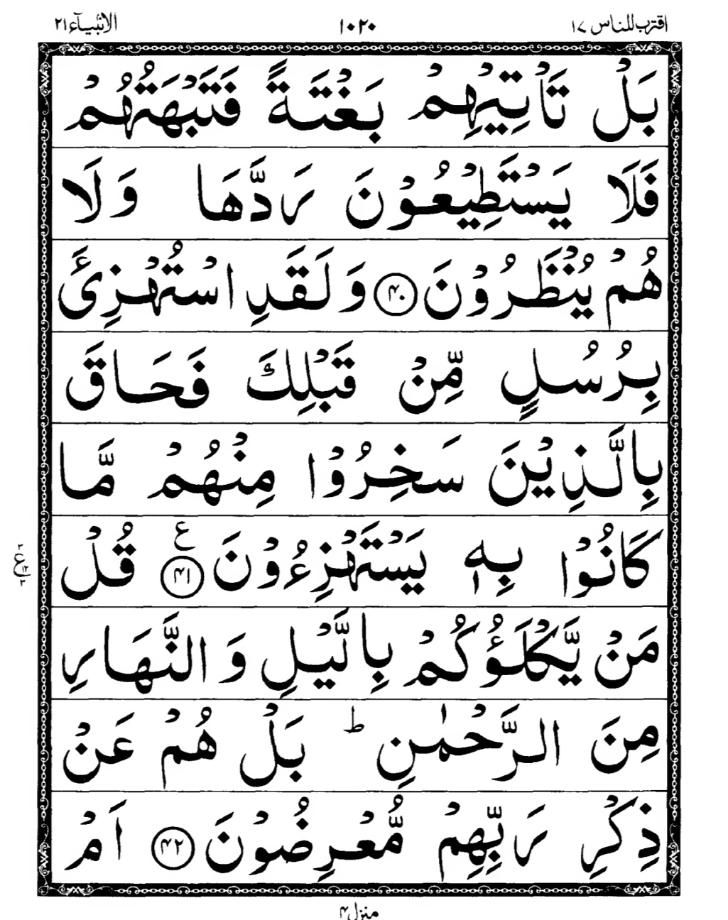 اقترب للناس ١٧ ١٠٢٠ الانبيآء ٢١
بَلْ تَاْتِيْهِمْ بَغْتَةً فَتَبْهَتُهُمْ
فَلَا يَسْتَطِيْعُوْنَ رَدَّهَا وَلَا
هُمْ يُنْظَرُوْنَ ﴿۴۰﴾ وَلَقَدِ اسْتُهْزِئَ
بِرُسُلٍ مِّنْ قَبْلِكَ فَحَاقَ
بِالَّذِيْنَ سَخِرُوْا مِنْهُمْ مَّا
كَانُوْا بِهٖ يَسْتَهْزِءُوْنَ ﴿۴۱﴾ ع قُلْ
مَنْ يَّكْلَؤُكُمْ بِالَّيْلِ وَالنَّهَارِ
مِنَ الرَّحْمٰنِ ط بَلْ هُمْ عَنْ
ذِكْرِ رَبِّهِمْ مُّعْرِضُوْنَ ﴿۴۲﴾ اَمْ
منزل ۴